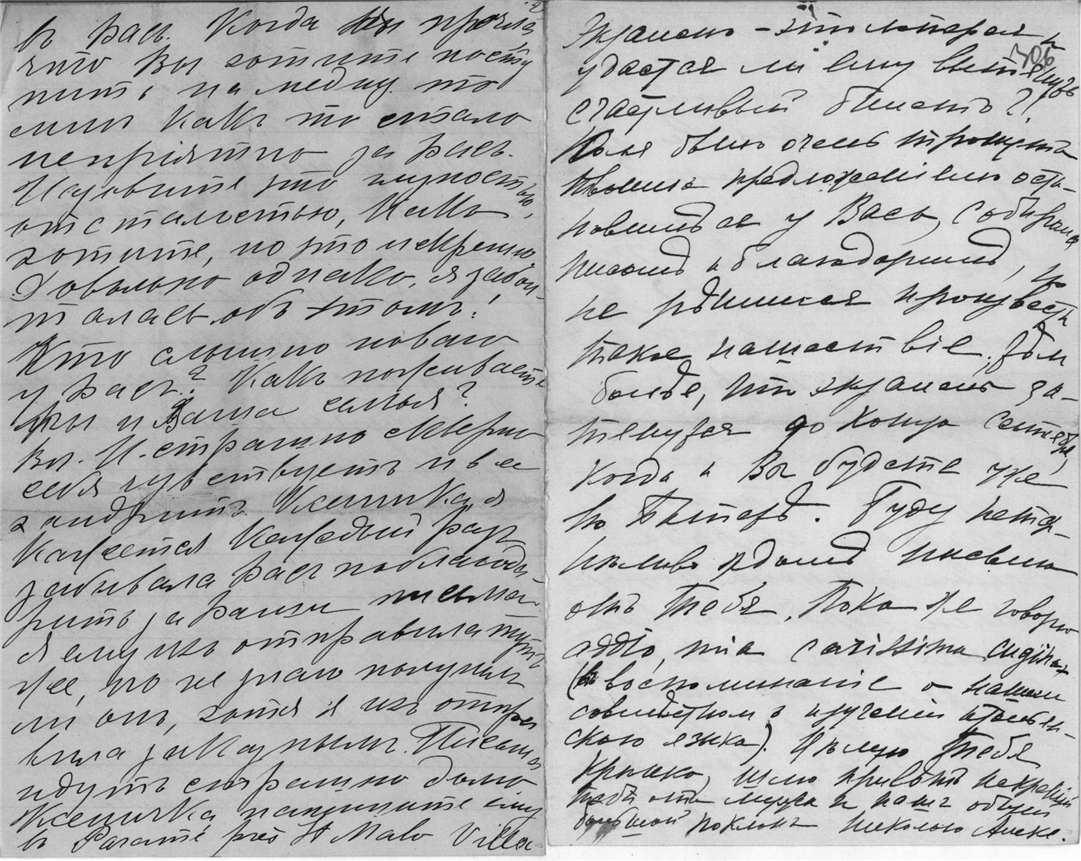 въ Васъ. Когда Вы прочла
что Вы хотите посту
пить на медиц. то
мнѣ какъ то стало
непрiятно за Васъ.
Назовите это глупостью,
отсталостью, какъ
хотите, но это искренно.
Довольно однако, я забол-
талась объ этомъ.
Что слышно новаго
у Васъ? Какъ поживаете
Вы и Ваша семья?
Вл. Н. страшно скверно
себя чувствуетъ и все
хандритъ. Ксеничка я
кажется каждый разъ
забывала Васъ поблагода-
рить за Ваши письма.
Я ему ихъ отправила тутъ
же, но не знаю получилъ
ли онъ, хотя я ихъ отпра
вила заказнымъ. Письма
идутъ страшно долго
Ксеничка напишите ему
въ Paramé près St Malo Villa
306
Экзамены - это лотерея,
удастся ли ему вытянуть
счастливый билетъ?!
Коля былъ очень тронутъ
твоимъ предложенiемъ оста-
новиться у Васъ, собирался
писать и благодарить, но
не рѣшился произвести
такое нашествiе, тѣмъ
болѣе, что экзамены за-
тянутся до конца сентября,
когда и Вы будете уже
въ Питерѣ. Буду нетер-
пѣливо ждать письма
отъ Тебя. Пока же говорю
addio, mia carissima
(въ воспоминанiе о нашемъ
совмѣстномъ изученiи итальян-
скаго языка). Цѣлую Тебя
крѣпко, шлю привѣтъ искреннiй
тебѣ отъ мужа и нашъ общiй
большой поклонъ Николаю Алекс.